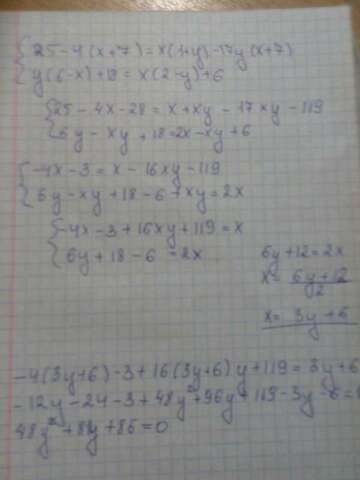 25-4(x+7)=x(1+y)-17y(x+7)
y(6-x)+18=x(2-y)+6
25-4x-28=x+xy-17xy-119
6y-xy+18=2x-xy+6
-4x-3=x-16xy-119
6y-xy+18-6+xy=2x
-4x-3+16xy+119=x
6y+18-6=2x
6y+12=2x
x=6y+12/2
x=3y+6
-4(3y+6)-3+16(3y+6)y+119=3y+6
-12y-24-3+48y²+96y+119-3y-6=
48y²+81y+86=0